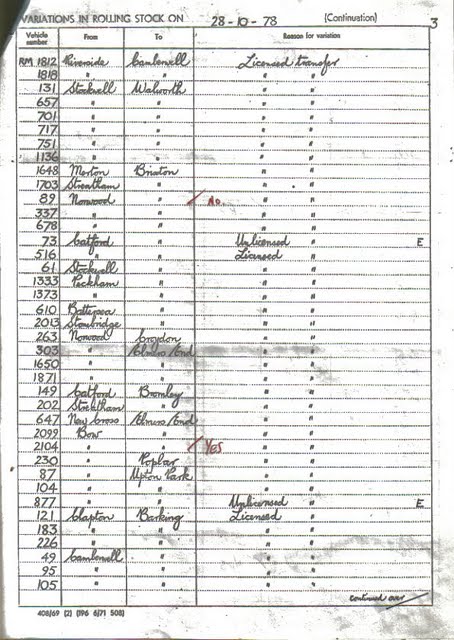 VARIATIONS IN ROLLING STOCK ON 28-10-78 (Continuation) 3
Vehicle number From To Reason for variation
RM 1812 Riverside Camberwell Licensed transfer
1818 " " " "
131 Stockwell Walworth " "
657 " " " "
701 " " " "
717 " " " "
751 " " " "
1136 " " " "
1648 Merton Brixton " "
1703 Streatham " " "
89 Norwood " / No. " "
337 " " " "
678 " " " "
73 Catford " Unlicensed " E
516 " " Licensed "
61 Stockwell " " "
1333 Peckham " " "
1373 " " " "
610 Battersea " " "
2013 Stonbridge " " "
263 Norwood Croydon " "
303 " Elmers End " "
1650 " " " "
1871 " " " "
149 Catford Bromley " "
202 Streatham " " "
647 New Cross Elmers End " "
2099 Bow " " "
2104 " " / YES " "
230 " Poplar " "
87 " Upton Park " "
104 " " " "
877 " " Unlicensed " E
121 Clapton Barking Licensed "
183 " " " "
226 " " " "
49 Camberwell " " "
95 " " " "
105 " " " "
continued over
408/69 (2) (196 6/71 508)